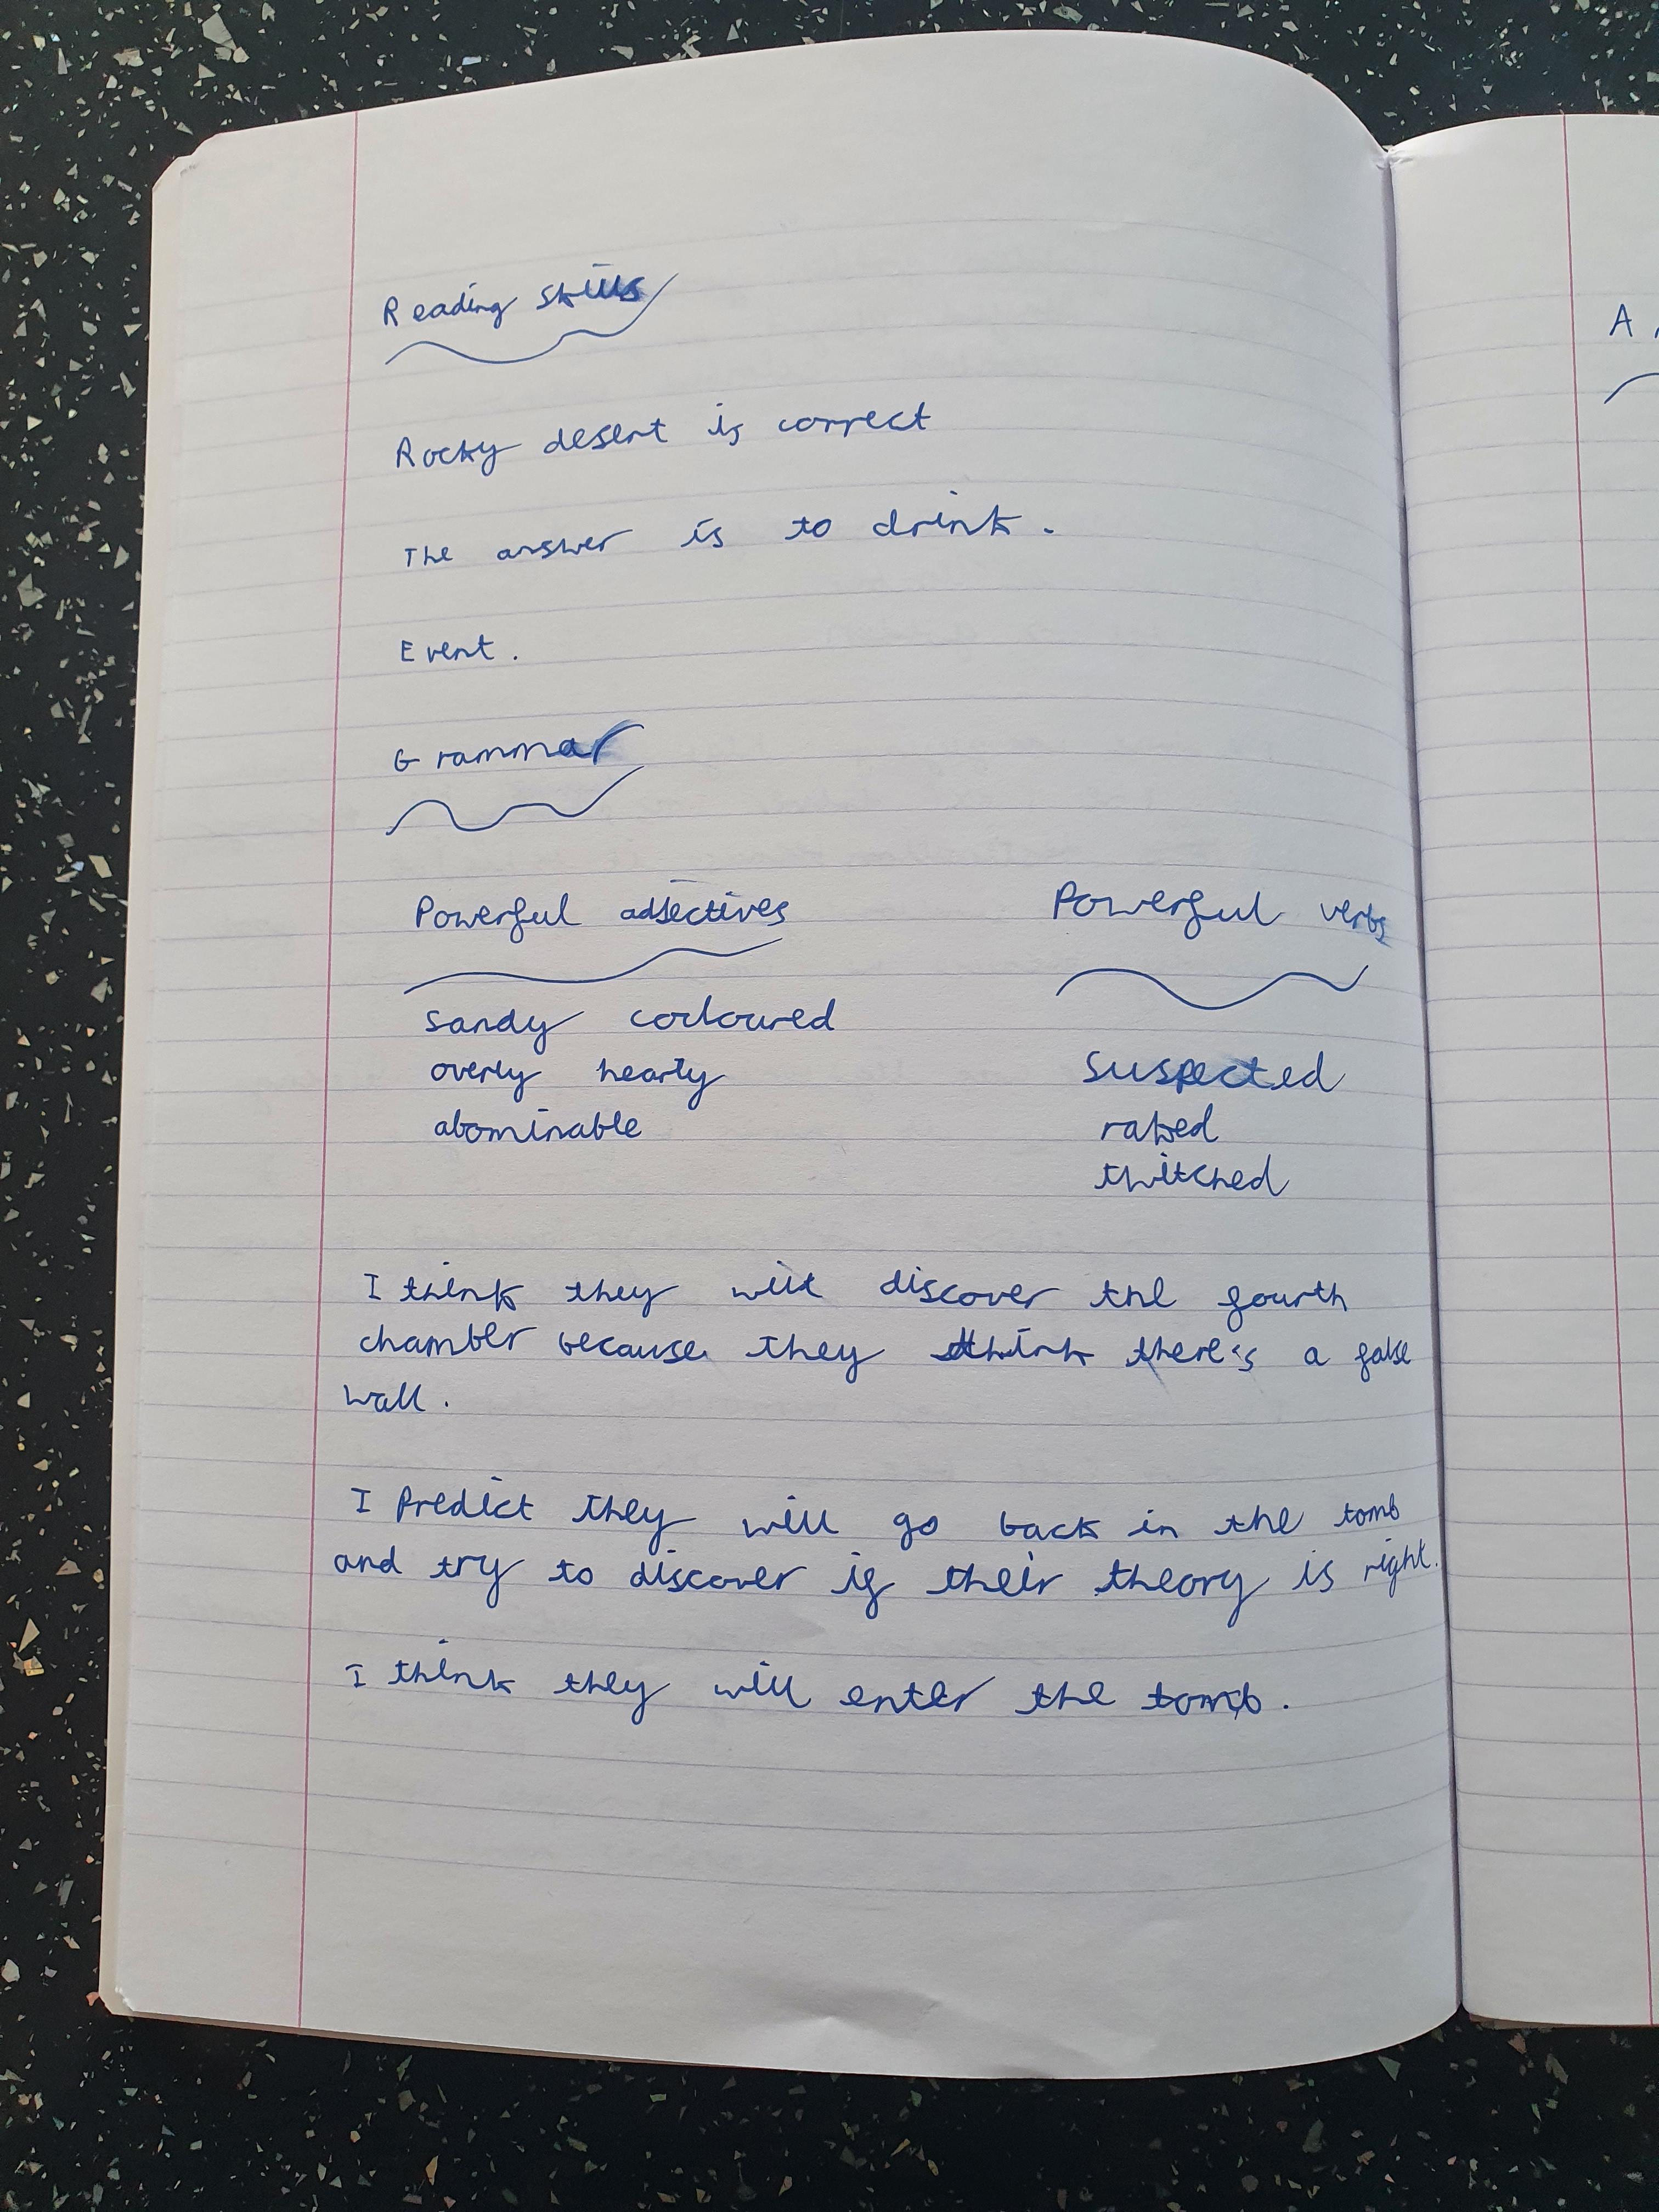 Reading skills
Rocky desert is correct
The answer is to drink.
Event.
Grammar
Powerful adjectives Powerful verbs
sandy coloured
overly hearty suspected
abominable raked
twitched
I think they will discover the fourth
chamber because they think there's a false
wall.
I predict they will go back in the tomb
and try to discover if their theory is right.
I think they will enter the tomb.
A